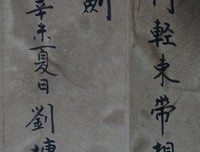 輕束帶
劍
辛未夏日劉